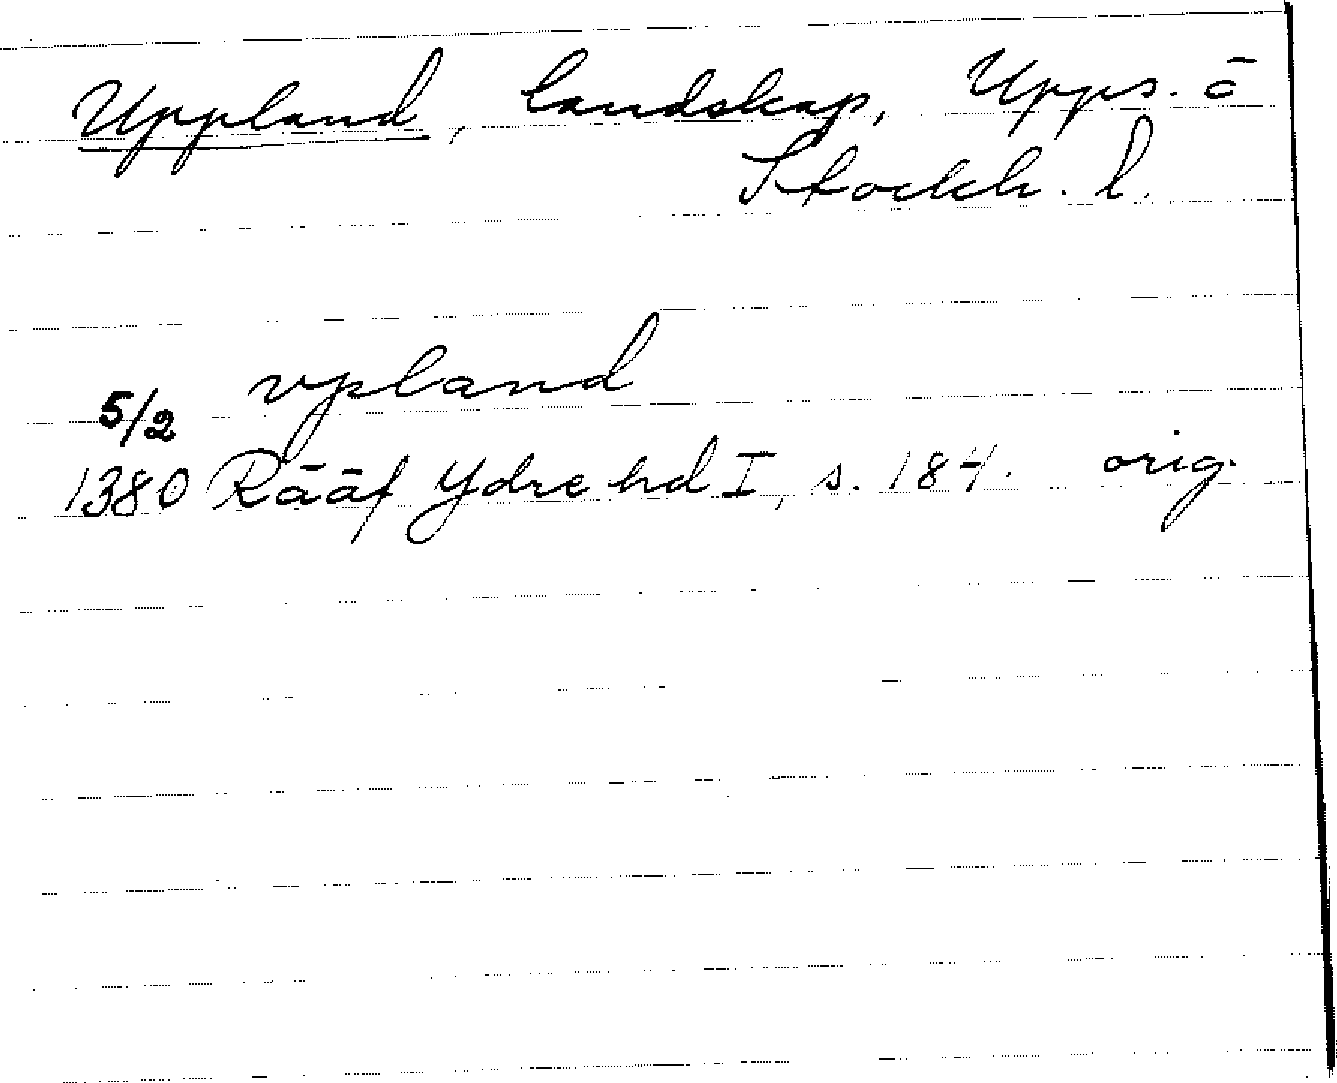 Uppland, landskap, Upps. ō
Stockh. l.
vpland
5/2
1380 Rääf Ydre hd I, s. 184. orig.